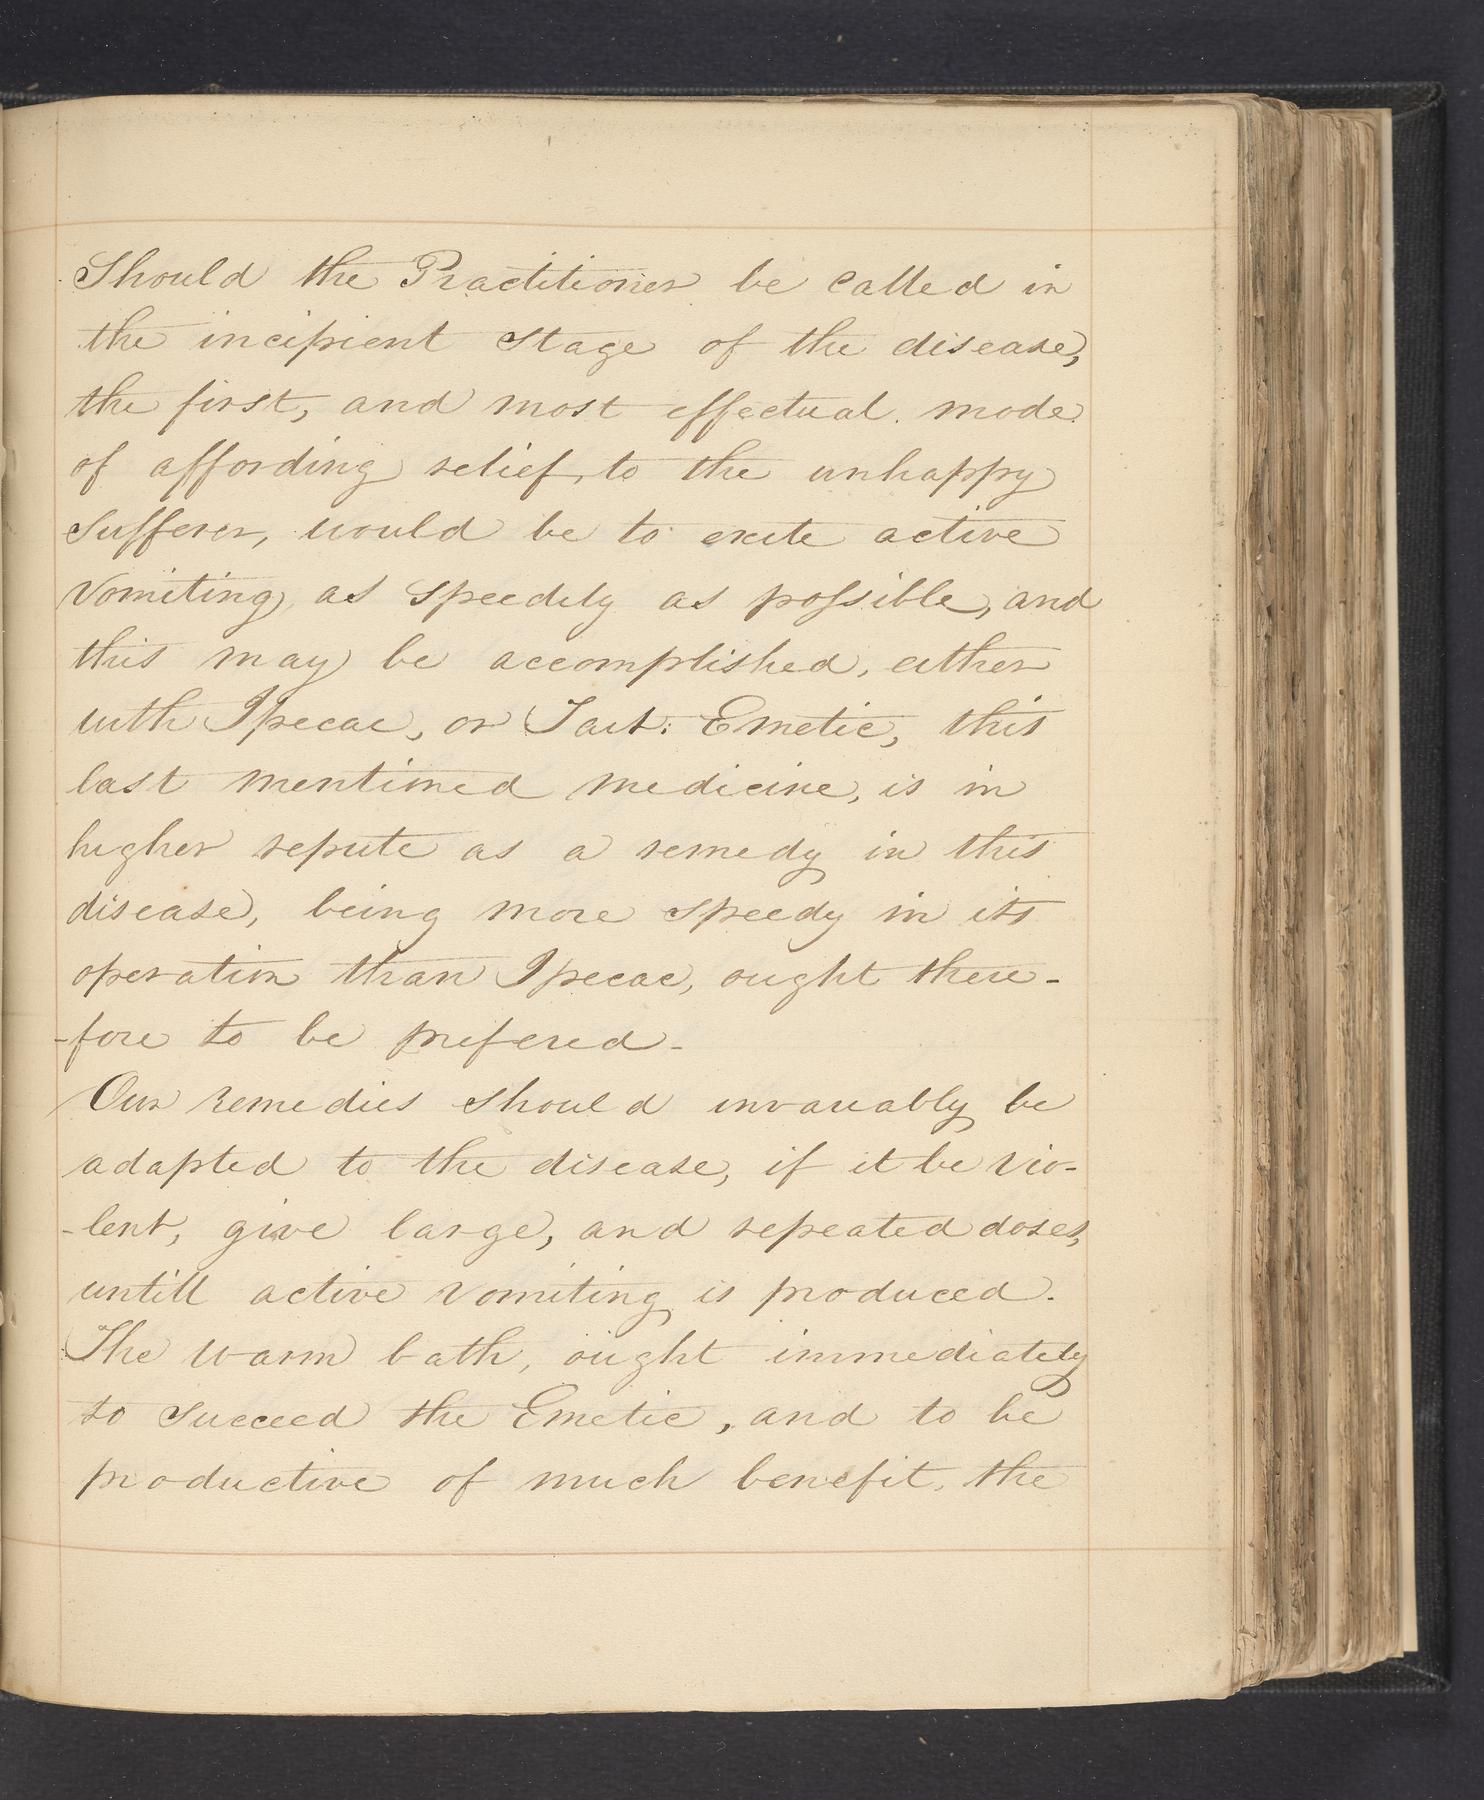 Should the Practitioner be called in
the incipient stage of the disease,
the first, and most effectual. mode
of affording relief, to the unhappy
sufferer, would be to excite active
vomiting, as speedily as possible, and
this may be accomplished, either
with Ipecac, or Tart: Emetic, this
last mentioned medicine, is in
higher repute as a remedy in this
disease, being more speedy in its
operation than Ipecac, ought there-
-fore to be prefered-
Our remedies should invariably be
adapted to the disease, if it be vio-
-lent, give large, and repeated doses,
untill active vomiting is produced.
The warm bath, ought immediately
to succeed the Emetic, and to be
productive of much benefit, the